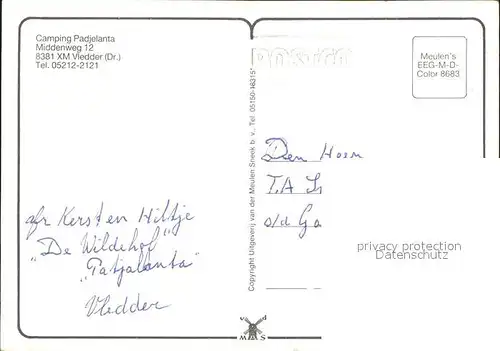 Camping Padjelanta
Middenweg 12
8381 XM Vledder (Dr.)
Tel. 05212-2121
afz Kersten Hiltje
"De Wildehof"
"Patjalanta"
Vledder
Copyright Uitgeverij van der Meulen Sneek b.v., Tel. 05150-18315*
Meulen's
EEG-M-D-
Color 8683
Den Hoorn
T.A
o/d Ga
privacy protection
Datenschutz
v d
M S